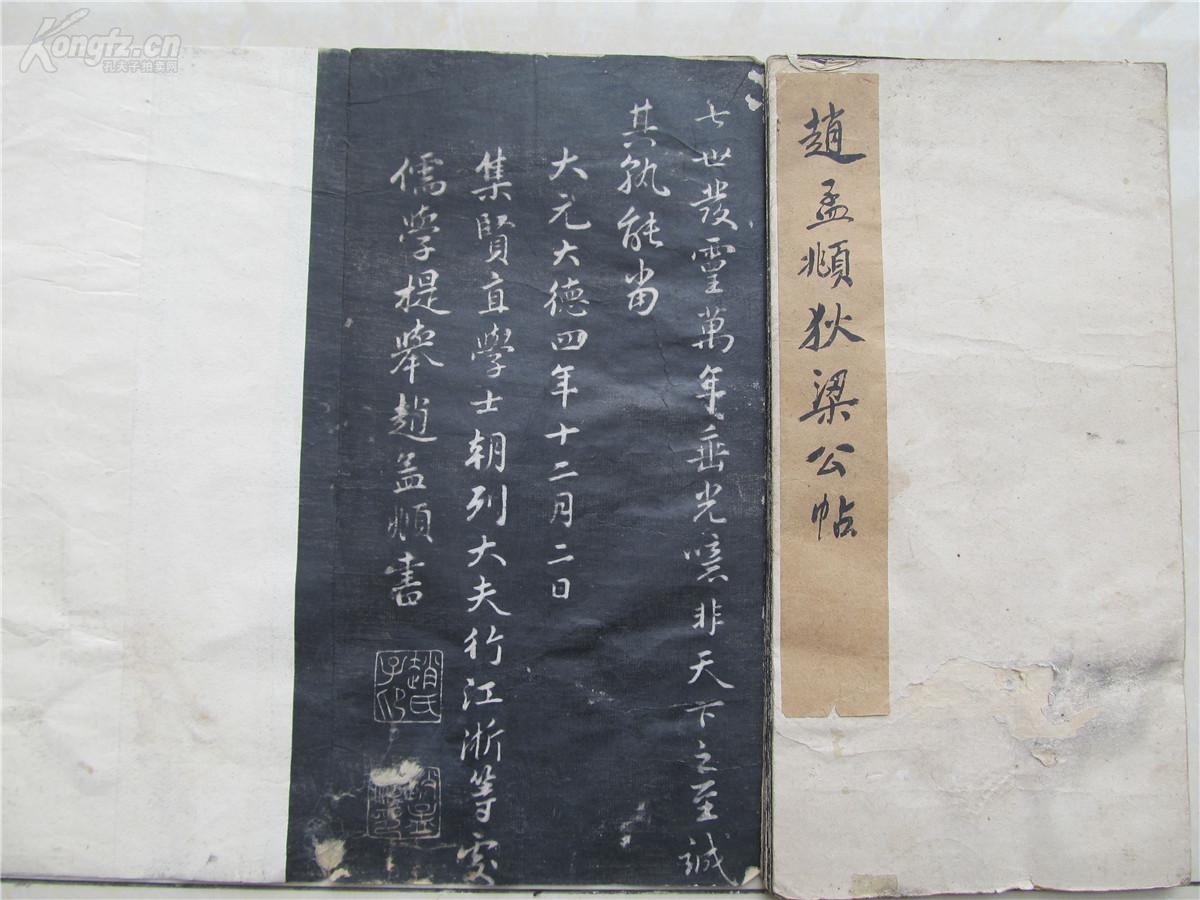 趙孟頫狄梁公帖
七世發靈萬年垂光噫非天下之至誠
其孰能當
大元大德四年十二月二日
集賢直學士朝列大夫行江浙等處
儒學提舉趙孟頫書
趙氏子昂
Kongfz.cn
孔夫子拍卖网